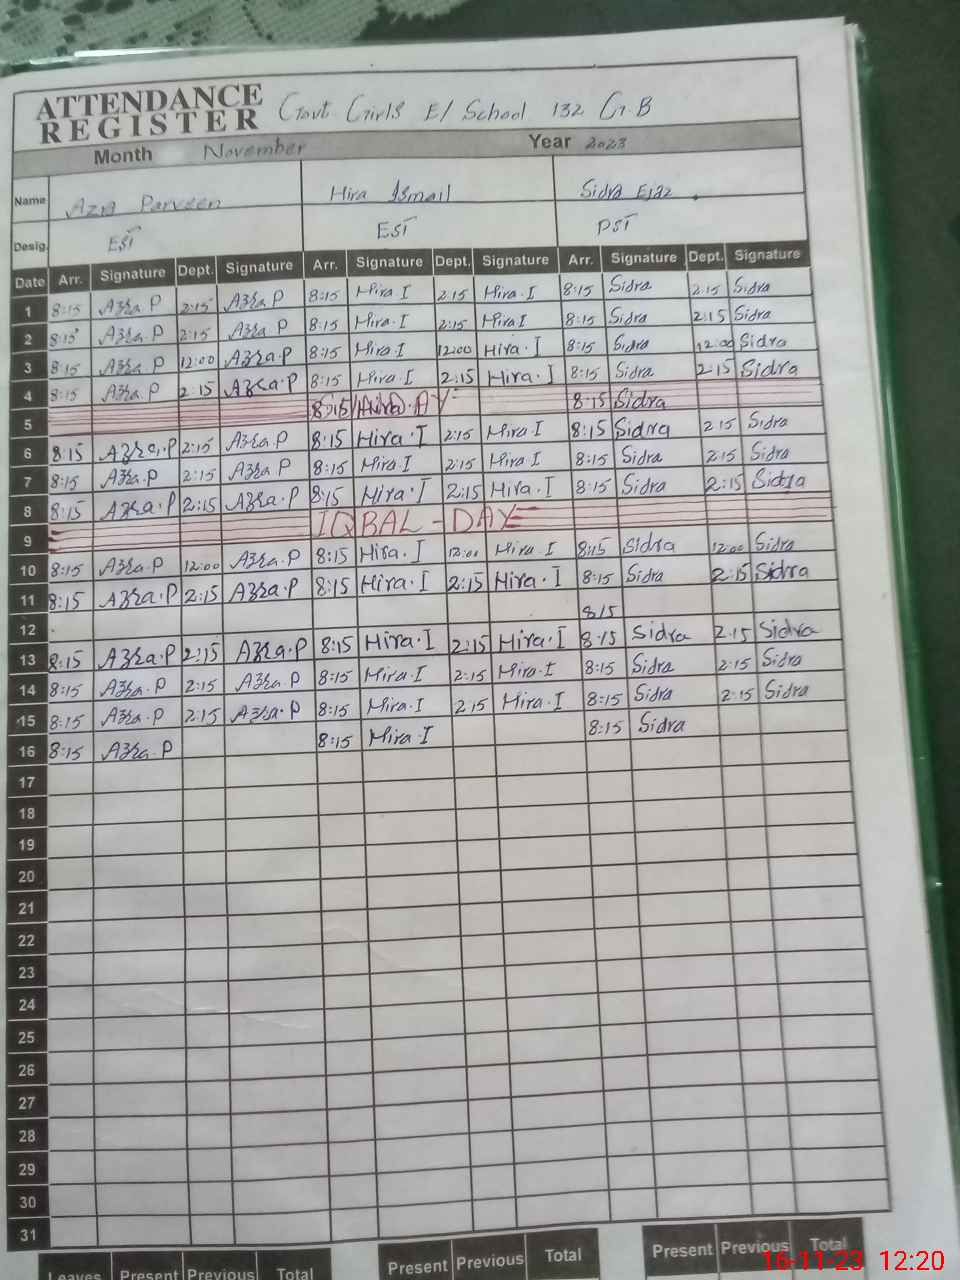 ATTENDANCE REGISTER Govt Girls E/ School 132 G B
Month November Year 2023
Name Azra Parveen Hira Ismail Sidra Ejaz
Desig. EST EST PST
Date Arr. Signature Dept. Signature Arr. Signature Dept. Signature Arr. Signature Dept. Signature
1 8:15 Azra P 2:15 Azra P 8:15 Hira I 2:15 Hira I 8:15 Sidra 2:15 Sidra
2 8:15 Azra P 2:15 Azra P 8:15 Hira I 2:15 Hira I 8:15 Sidra 2:15 Sidra
3 8:15 Azra P 12:00 Azra P 8:15 Hira I 12:00 Hira I 8:15 Sidra 12:00 Sidra
4 8:15 Azra P 2:15 Azra P 8:15 Hira I 2:15 Hira I 8:15 Sidra 2:15 Sidra
5 8:15 8:15 Sidra
6 8:15 Azra P 2:15 Azra P 8:15 Hira I 2:15 Hira I 8:15 Sidra 2 15 Sidra
7 8:15 Azra P 2:15 Azra P 8:15 Hira I 2:15 Hira I 8:15 Sidra 2:15 Sidra
8 8:15 Azra P 2:15 Azra P 8:15 Hira I 2:15 Hira I 8:15 Sidra 2:15 Sidra
9 IQBAL - DAY
10 8:15 Azra P 12:00 Azra P 8:15 Hira I 12:00 Hira I 8:15 Sidra 12:00 Sidra
11 8:15 Azra P 2:15 Azra P 8:15 Hira I 2:15 Hira I 8:15 Sidra 2:15 Sidra
12 8 15
13 8:15 Azra P 2:15 Azra P 8:15 Hira I 2:15 Hira I 8:15 Sidra 2:15 Sidra
14 8:15 Azra P 2:15 Azra P 8:15 Hira I 2:15 Hira I 8:15 Sidra 2:15 Sidra
15 8:15 Azra P 2:15 Azra P 8:15 Hira I 2 15 Hira I 8:15 Sidra 2:15 Sidra
16 8:15 Azra P 8:15 Hira I 8:15 Sidra
17
18
19
20
21
22
23
24
25
26
27
28
29
30
31
Leaves Present Previous Total Present Previous Total Present Previous Total
16-11-23 12:20